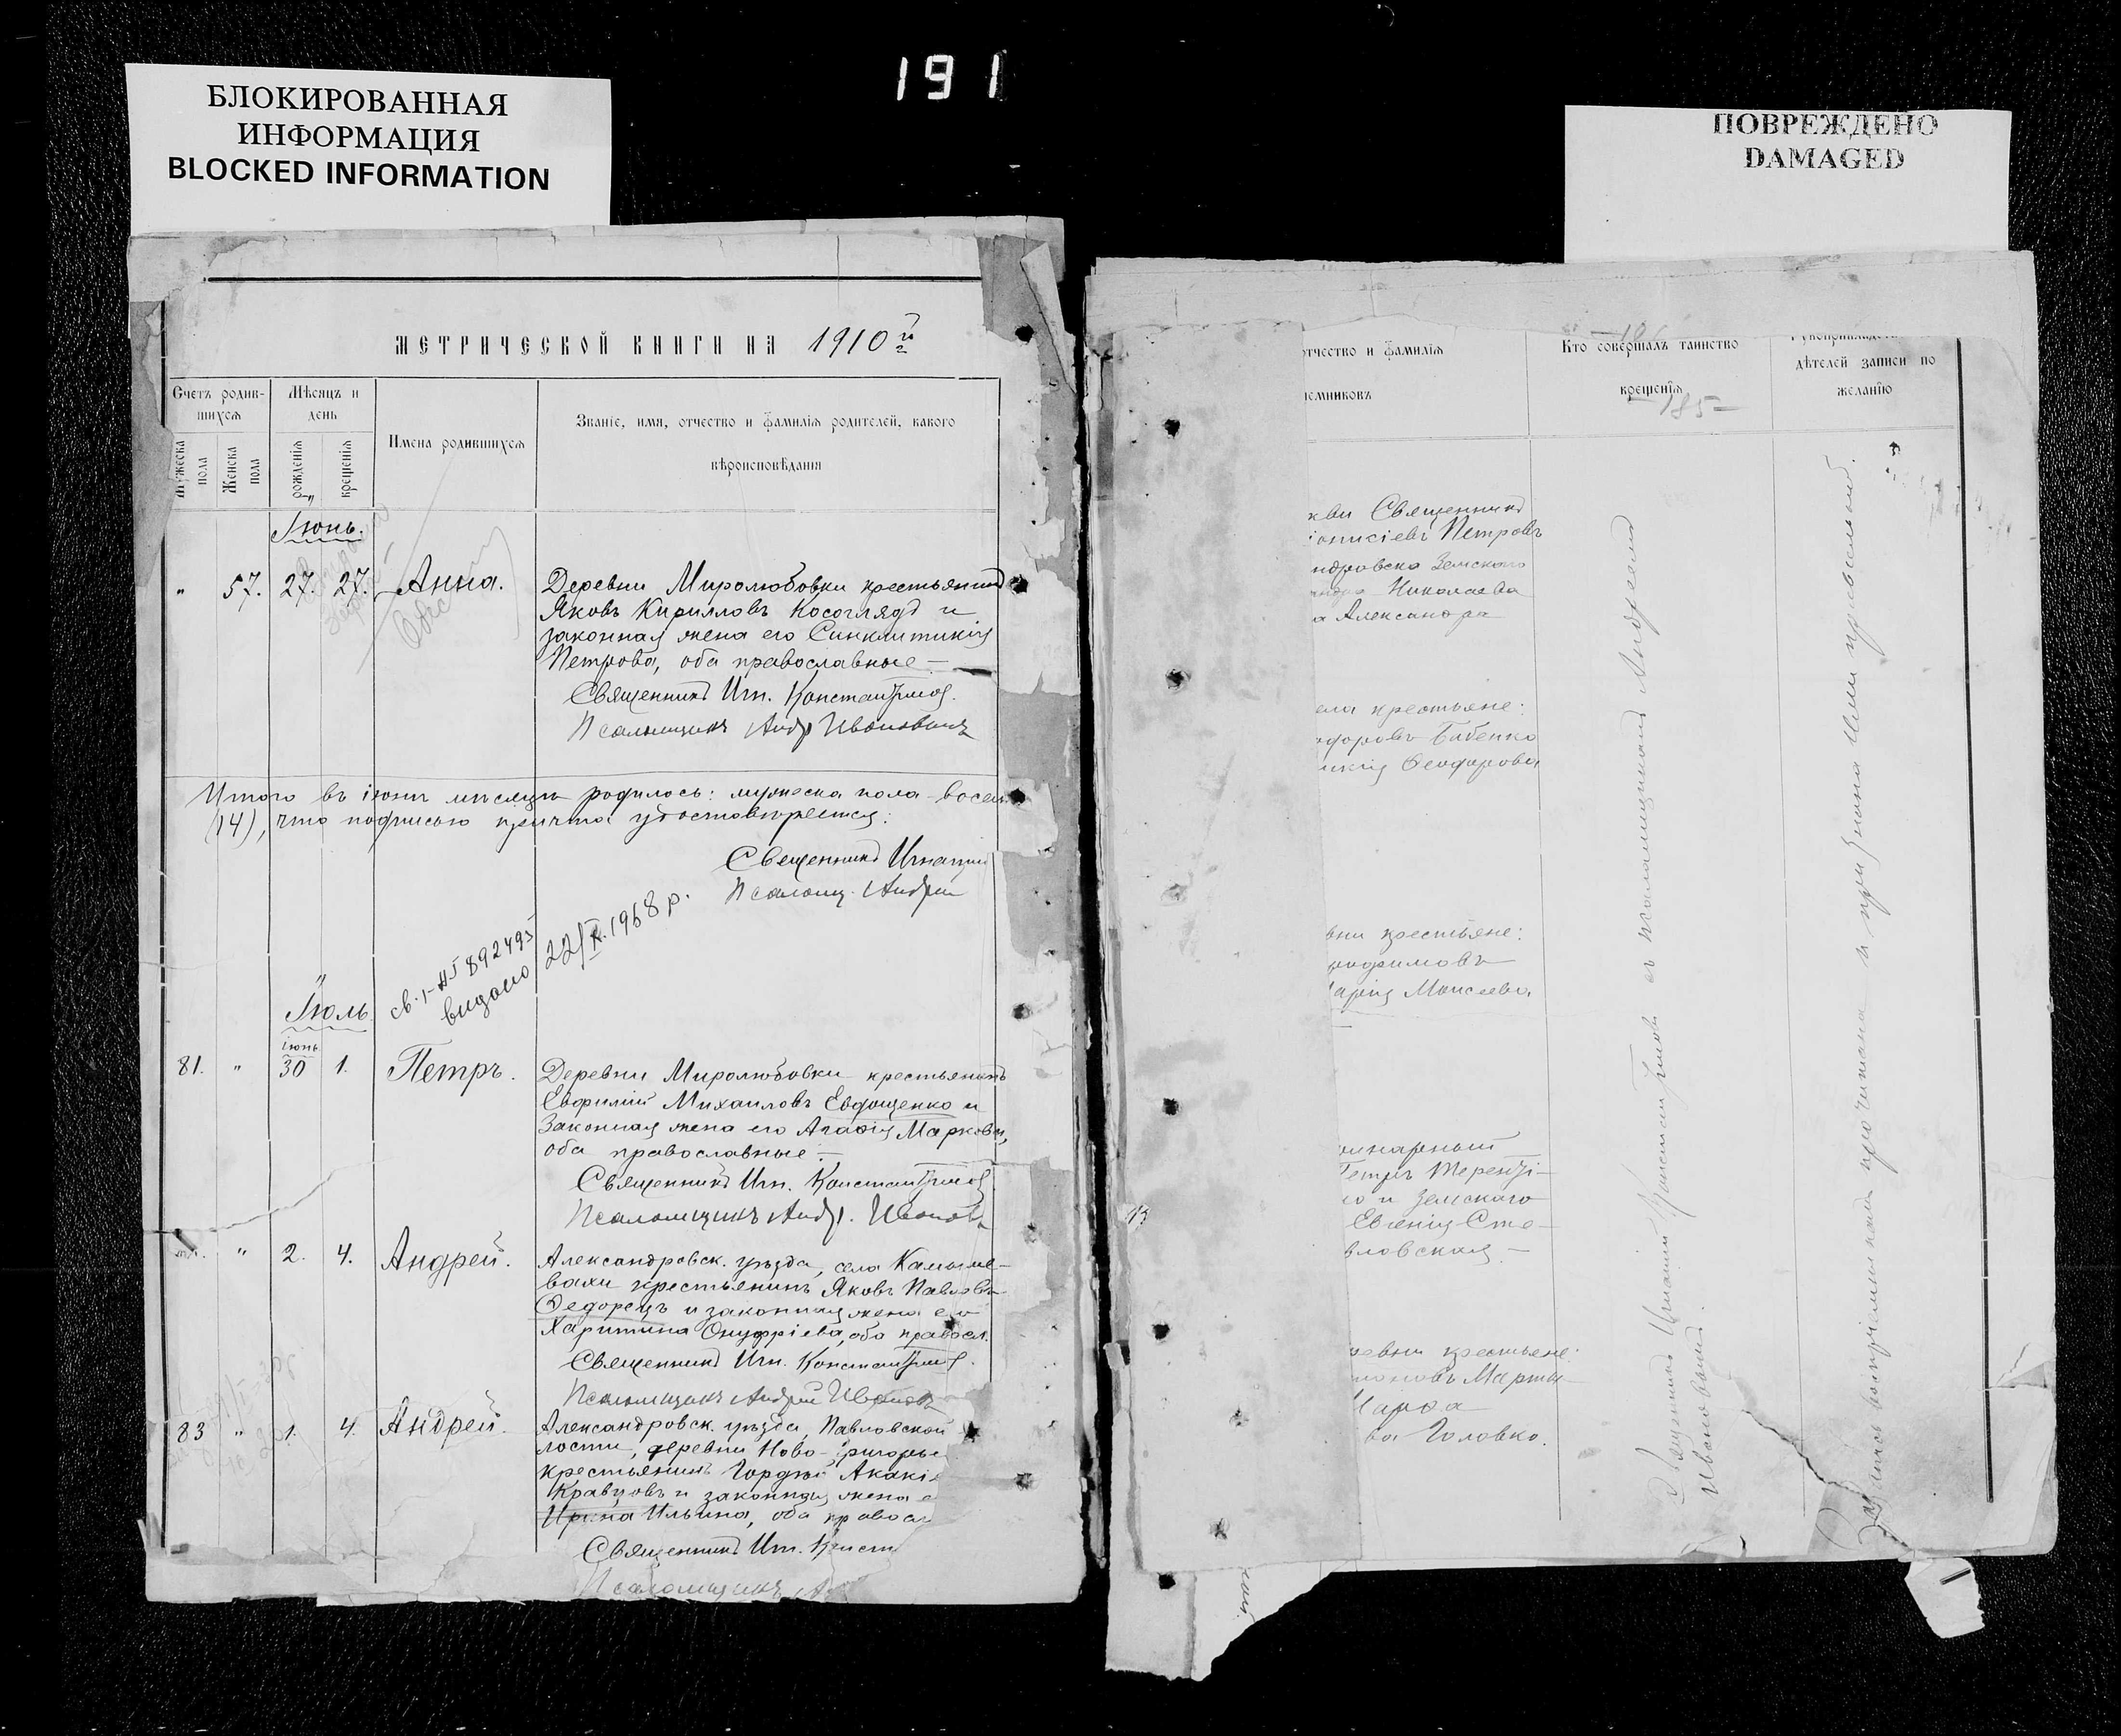 191
БЛОКИРОВАННАЯ
ИНФОРМАЦИЯ
BLOCKED INFORMATION
ПОВРЕЖДЕНО
DAMAGED
МЕТРИЧЕСКОЙ КНИГИ НА 1910 й г
Счетъ родив-
шихся
Мѣсяцъ и
день
Мужеска
пола
Женска
пола
рожденія
крещенія
Имена родившихся
Званіе, имя, отчество и фамилія родителей, какого
вѣроисповѣданія
Іюнь.
" 57. 27. 27. Анна.
Деревни Миролюбовки крестьянинъ
Яковъ Кирилловъ Косоглядъ и
законная жена его Синклитикія
Петрова, оба православные —
Священникъ Игн. Константиновъ.
Псаломщикъ Андр Ивановъ
Итого въ іюнѣ мѣсяцѣ родилось: мужеска пола - восем
(14), что подписью причта удостовѣряется:
Священникъ Игнатій
Псаломщ. Андрей
св. 892495
видано 22/ 1968 р.
Іюль
81. " іюнь 30 1. Петръ.
Деревни Миролюбовки крестьянинъ
Евфимій Михаиловъ Евдощенко и
законная жена его Агафія Маркова,
оба православные. —
Священникъ Игн. Константиновъ
Псаломщикъ Андр. Иванов
" 2. 4. Андрей.
Александровск. уѣзда, села Камыше-
вахи крестьянинъ Яковъ Павловъ
Федорецъ и законная жена его
Харитина Онуфріева, оба правосл.
Священникъ Игн. Константинов.
Псаломщикъ Андрей Ивановъ
83 " 1. 4. Андрей.
Александровск. уѣзда, Павловской
лости, деревни Ново-Григорье
крестьянинъ Гордѣй Акакі
Кравцовъ и законная жена е
Ирина Ильина, оба правосл
Священникъ Игн. Конст
Псаломщикъ А
отчество и фамилія
іемниковъ
Кто совершалъ таинство
крещенія
185
дѣтелей записи по
желанію
кви Священникъ
іонисіевъ Петровъ
ндровска Земскаго
Николаева
а Александра
ела крестьяне:
одоровъ Бабенко
икія Феодорова
вни крестьяне:
рофимовъ
арія Моисеева
Петръ Терентi-
го и Земскаго
Евгенія Сте-
вловская —
ревни крестьяне:
моновъ Марты
Марѳа
ва Головко.
Священникъ Игнатій Константиновъ съ псаломщикомъ Андреемъ
Ивановымъ.
Запись воспріемниками прочитана и признана ими правильной.